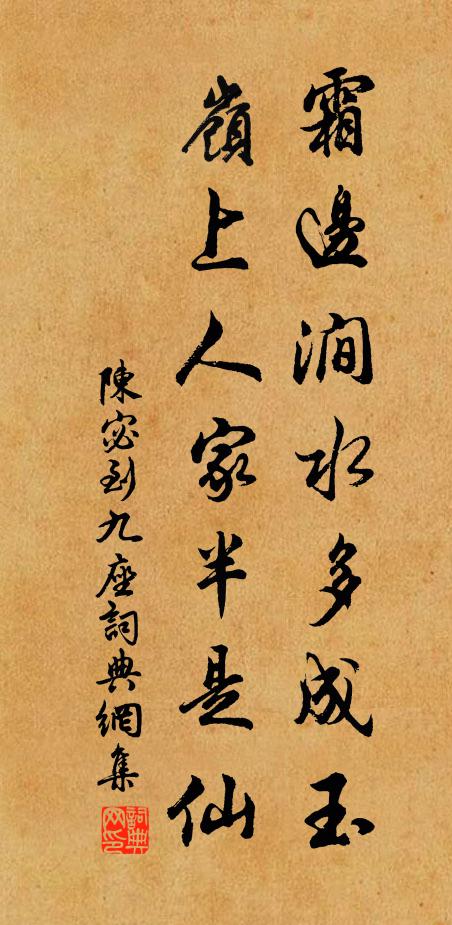 霜邊澗水多成玉
嶺上人家半是仙
陳宓到九座詞典網集
詞典網印